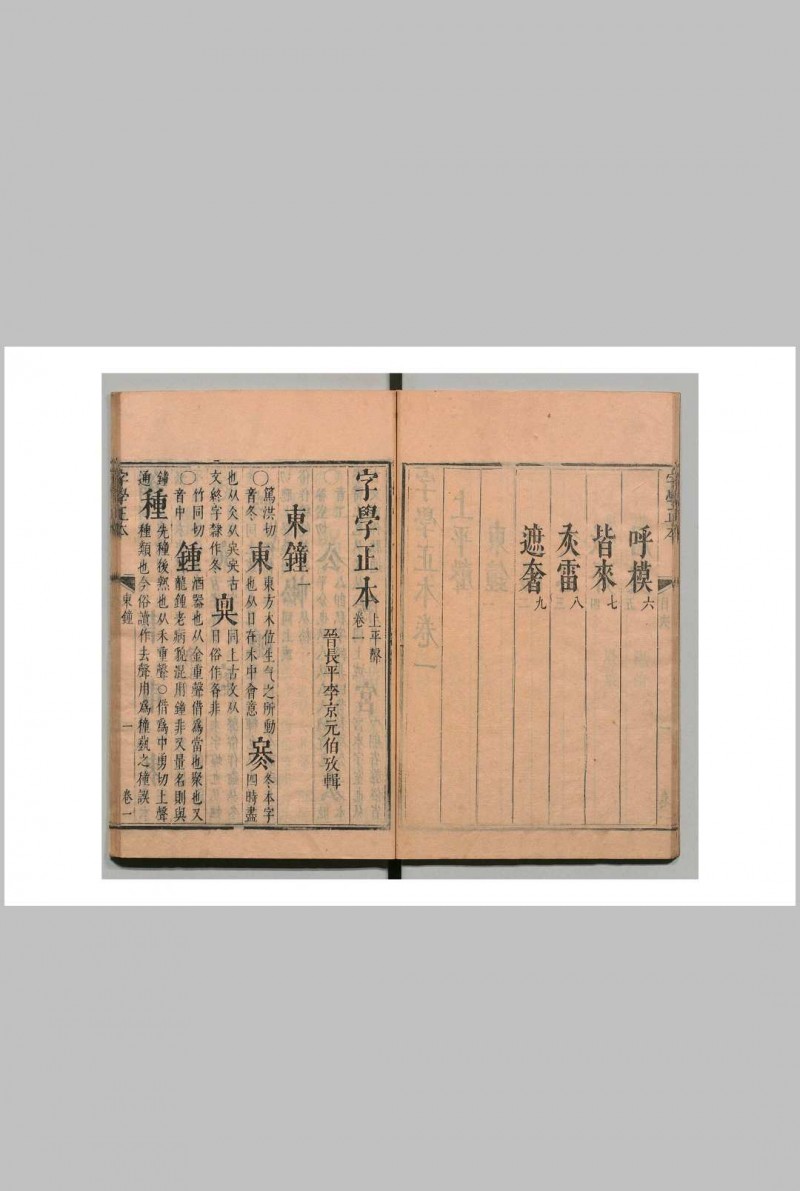 呼模六
皆來七
灰雷八
遮奢九
字學正本卷一 上平聲
晉長平李京元伯攷輯
東鐘一
○篤洪切音冬 東 東方木位生气之所動也从日在木中會意 冬本字四時盡
也从仌从古文終字隸作冬 同上古文从日俗作昝非
○竹同切音中 鍾 酒器也从金重聲借爲當也聚也又龍鍾老病貌混用鐘非又量名則與
鐘通 種 先種後熟也从禾重聲○借爲中勇切上聲種類也今俗讀作去聲用爲種蓺之穜誤
字學正本
東鐘
一
卷一